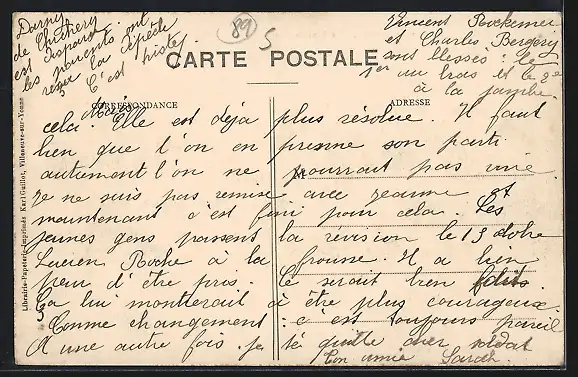 Darny
de Chichery
est disparu
les parents ont
reçu la dépêche
C'est triste
89
5
Vincent Rockemer
et Charles Bergery
sont blessés : le
1er au bras et le 2e
à la jambe
CARTE POSTALE
CORRESPONDANCE
ADRESSE
M
Mais
cela. Elle est déjà plus résolue. Il faut
bien que l'on en prenne son parti
autrement l'on ne pourrait pas vivre
Je ne suis pas remise avec Jeanne et
maintenant c'est fini pour cela. Les
jeunes gens passent la révision le 13 octobre
Lucien Roche à la frousse. Il a bien
peur d'être pris. Ce serait bien
Ça lui montrerait à être plus courageux.
Comme changement : c'est toujours pareil
A une autre fois. Je te quitte cher soldat
Ton amie Sarah.
Librairie-Papeterie-Imprimés Karl Guillot, Villeneuve-sur-Yonne